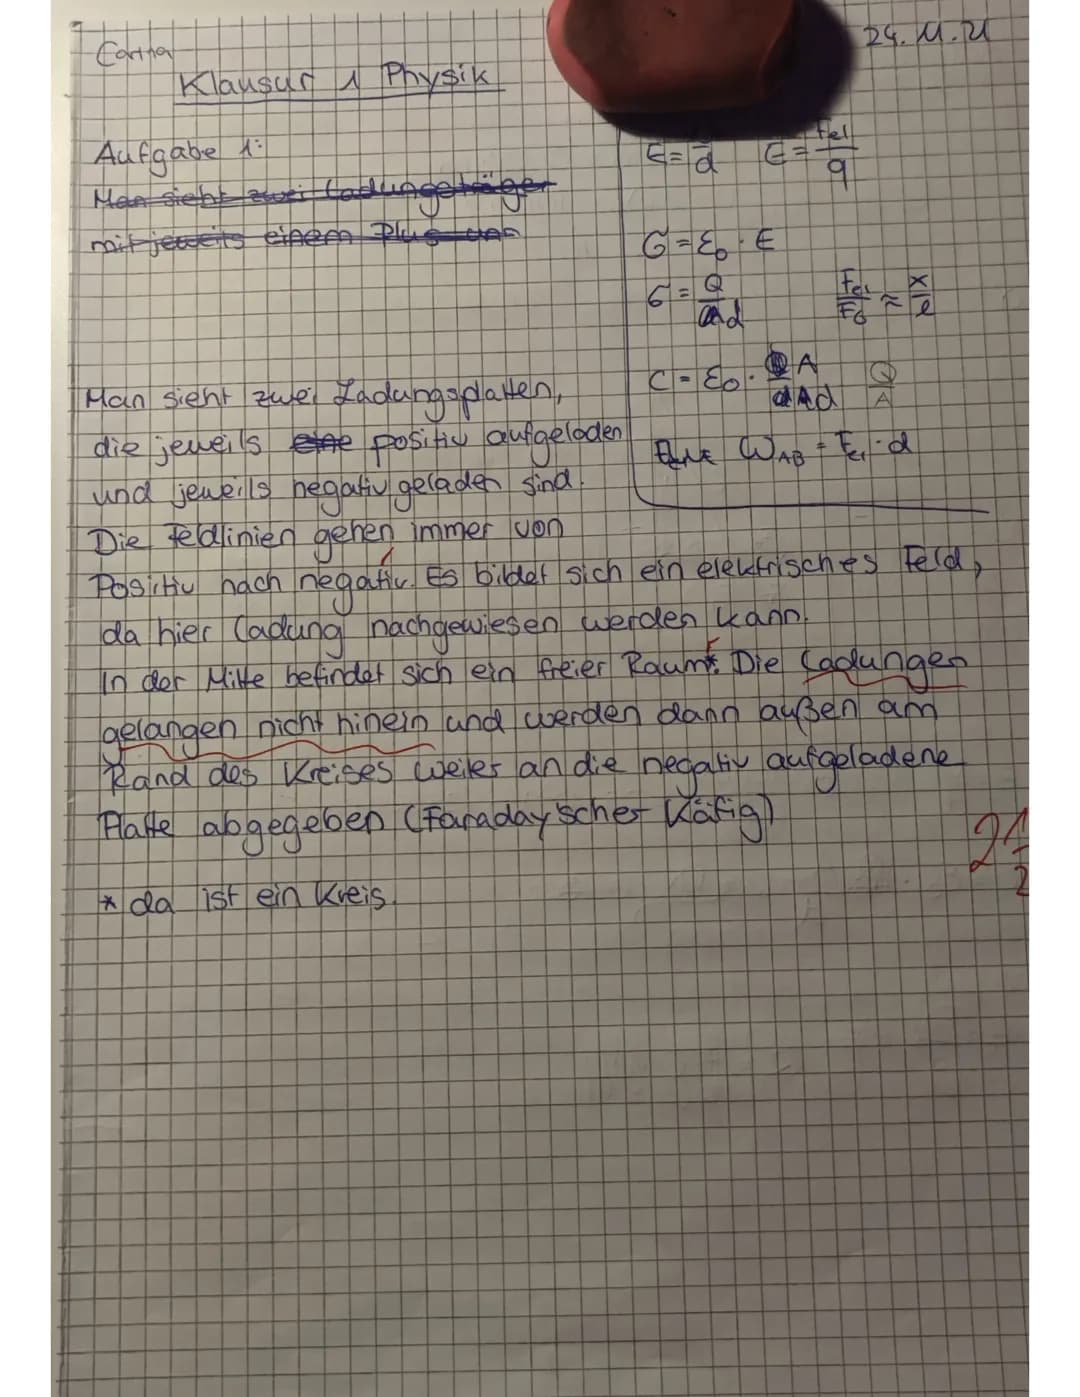 Carina
24.11.21
Klausur 1 Physik
Aufgabe 1:
Man sieht zwei Ladungsträger
mit jeweils einem Plus
E = d E = Fel / q
σ = ε0 · E
σ = Q / d Fel / FG ≈ x / l
C = ε0 · A / d Q / A
WAB = Fel · d
Man sieht zwei Ladungsplatten,
die jeweils eine positiv aufgeladen
und jeweils negativ geladen sind.
Die Feldlinien gehen immer von
Positiv nach negativ. Es bildet sich ein elektrisches Feld,
da hier Ladung nachgewiesen werden kann.
In der Mitte befindet sich ein freier Raum*. Die Ladungen
gelangen nicht hinein und werden dann außen am
Rand des Kreises weiter an die negativ aufgeladene
Platte abgegeben (Faraday'scher Käfig)
* da ist ein Kreis.
2 1/2